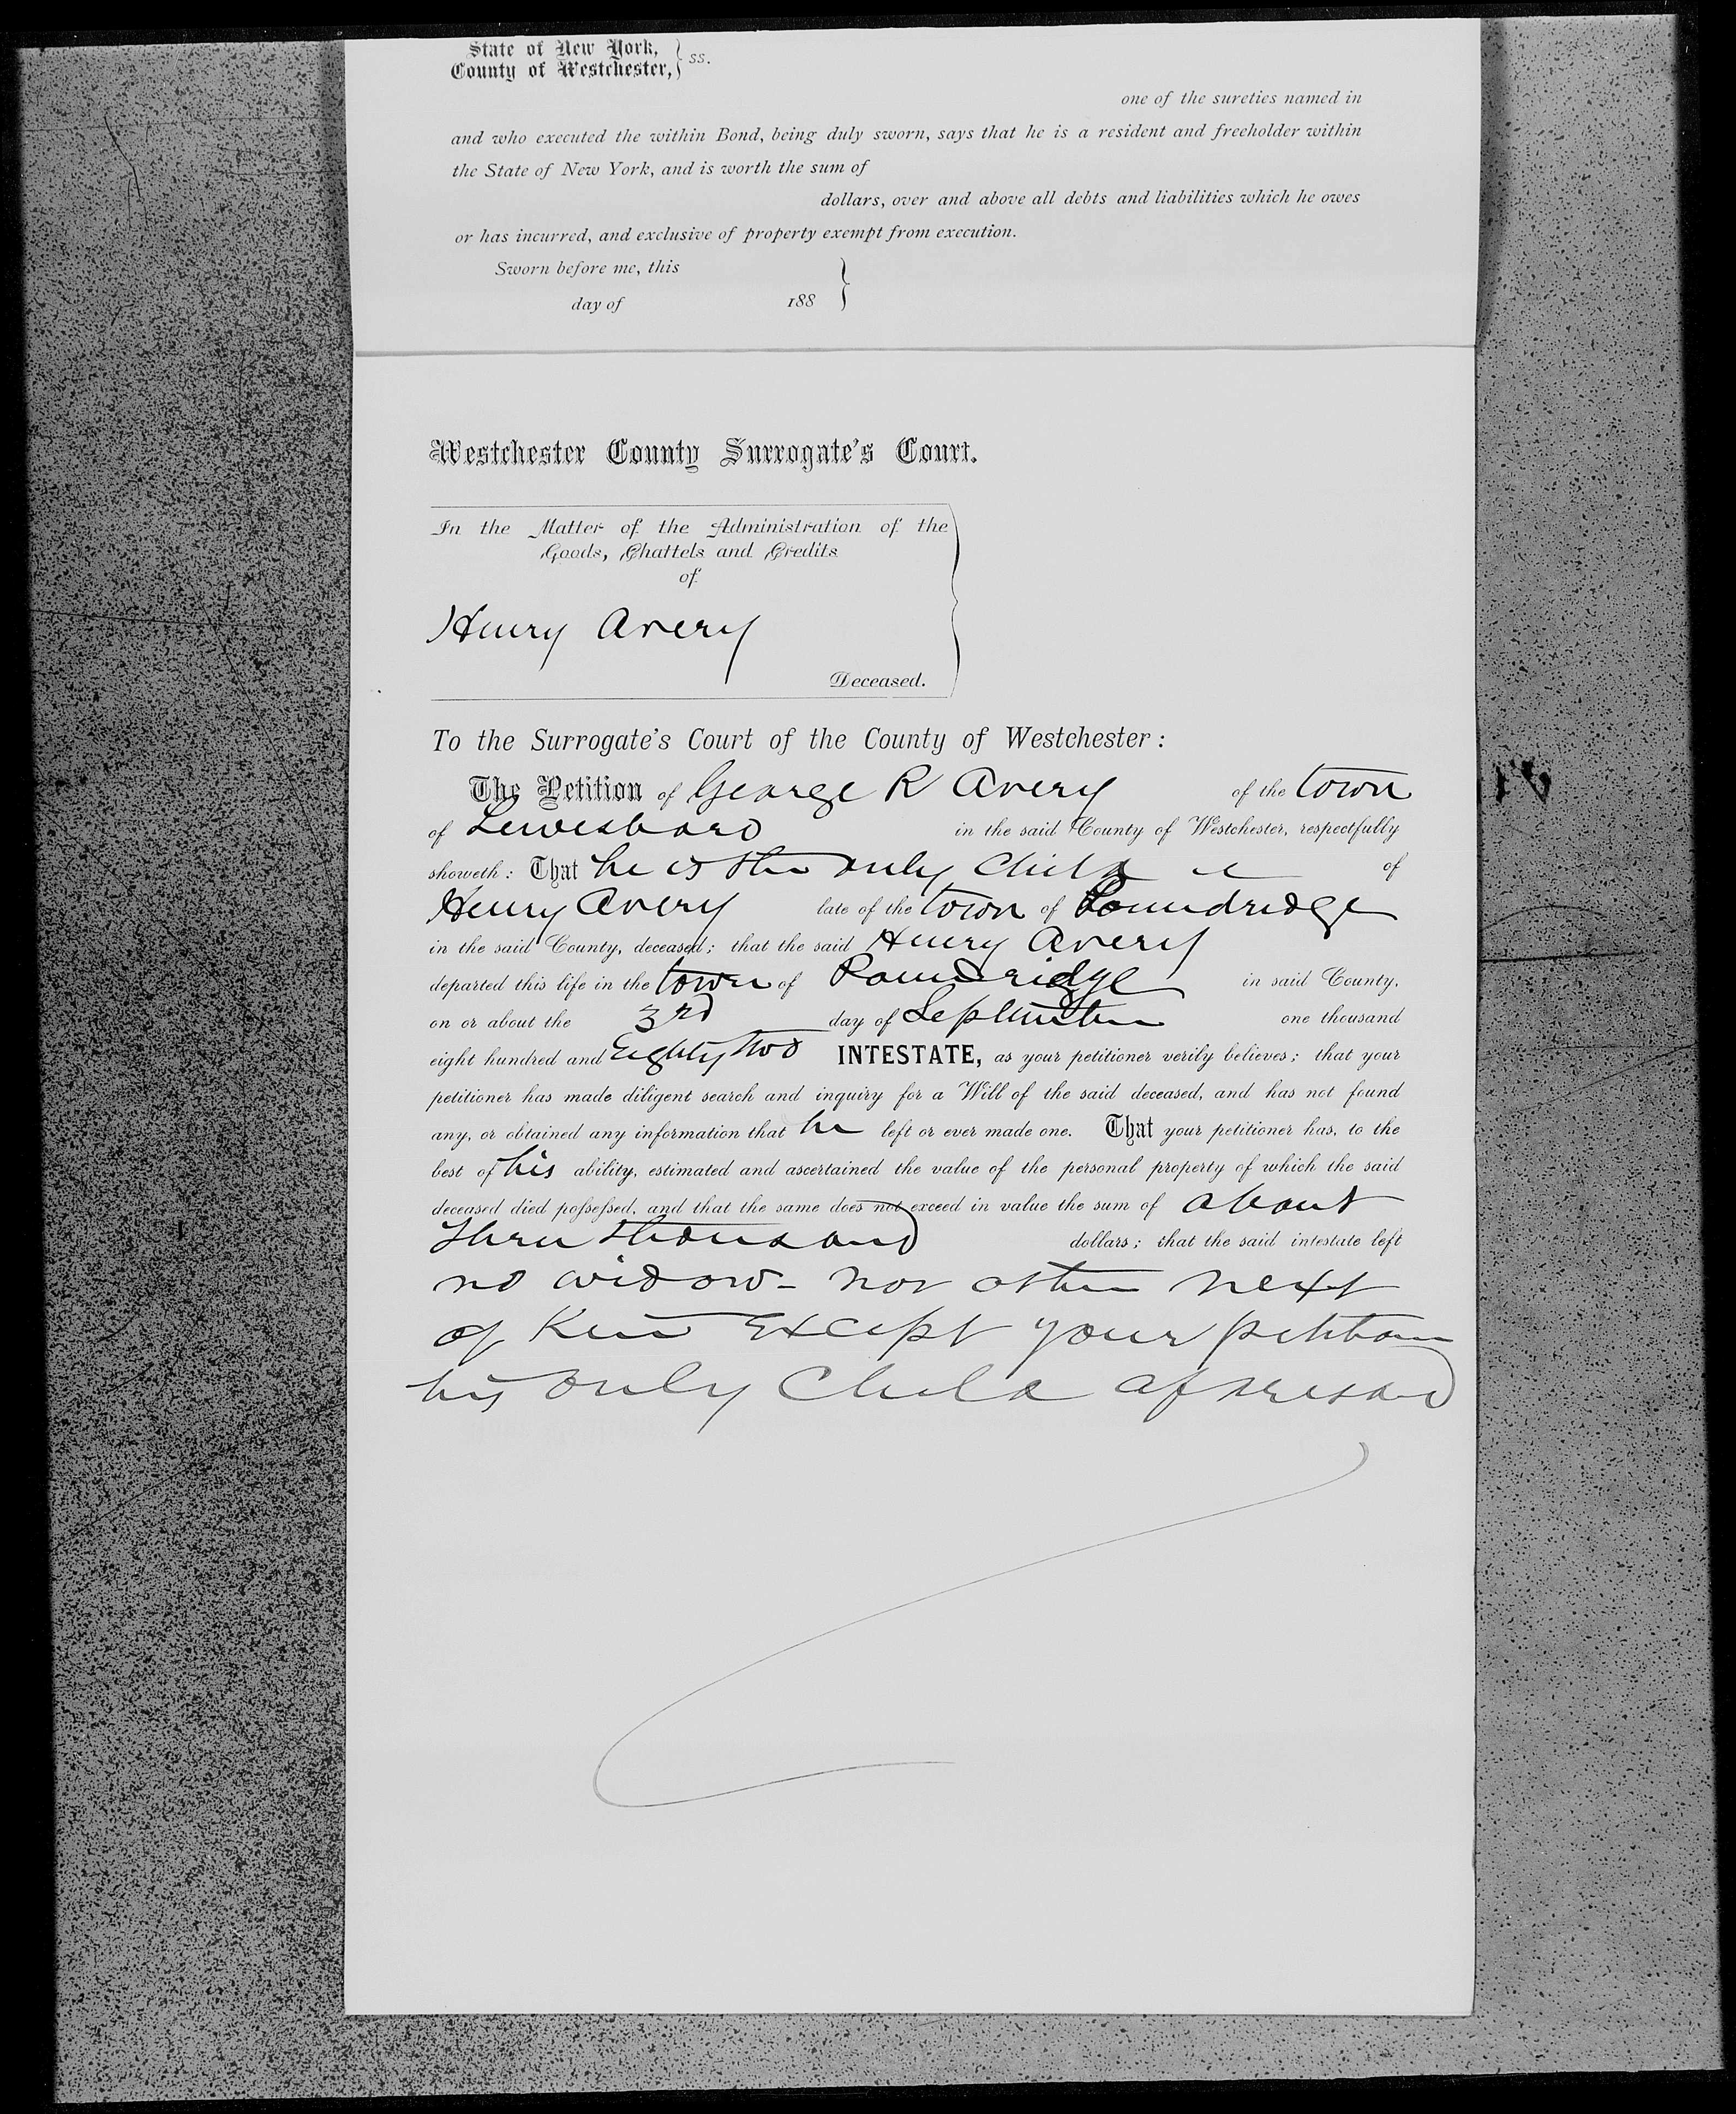 State of New York,
County of Westchester, } ss.
one of the sureties named in
and who executed the within Bond, being duly sworn, says that he is a resident and freeholder within
the State of New York, and is worth the sum of
dollars, over and above all debts and liabilities which he owes
or has incurred, and exclusive of property exempt from execution.
Sworn before me, this
day of 188 }
Westchester County Surrogate's Court.
In the Matter of the Administration of the
Goods, Chattels and Credits
of
Henry Avery
Deceased.
To the Surrogate's Court of the County of Westchester:
The Petition of George R Avery of the town
of Lewisboro in the said County of Westchester, respectfully
showeth: That he is the only child of
Henry Avery late of the town of Poundridge
in the said County, deceased; that the said Henry Avery
departed this life in the town of Poundridge in said County,
on or about the 3rd day of September one thousand
eight hundred and Eighty two INTESTATE, as your petitioner verily believes; that your
petitioner has made diligent search and inquiry for a Will of the said deceased, and has not found
any, or obtained any information that he left or ever made one. That your petitioner has, to the
best of his ability, estimated and ascertained the value of the personal property of which the said
deceased died possessed, and that the same does not exceed in value the sum of about
three thousand dollars; that the said intestate left
no widow - nor other next
of Kin Except your petitioner
his only Child aforesaid